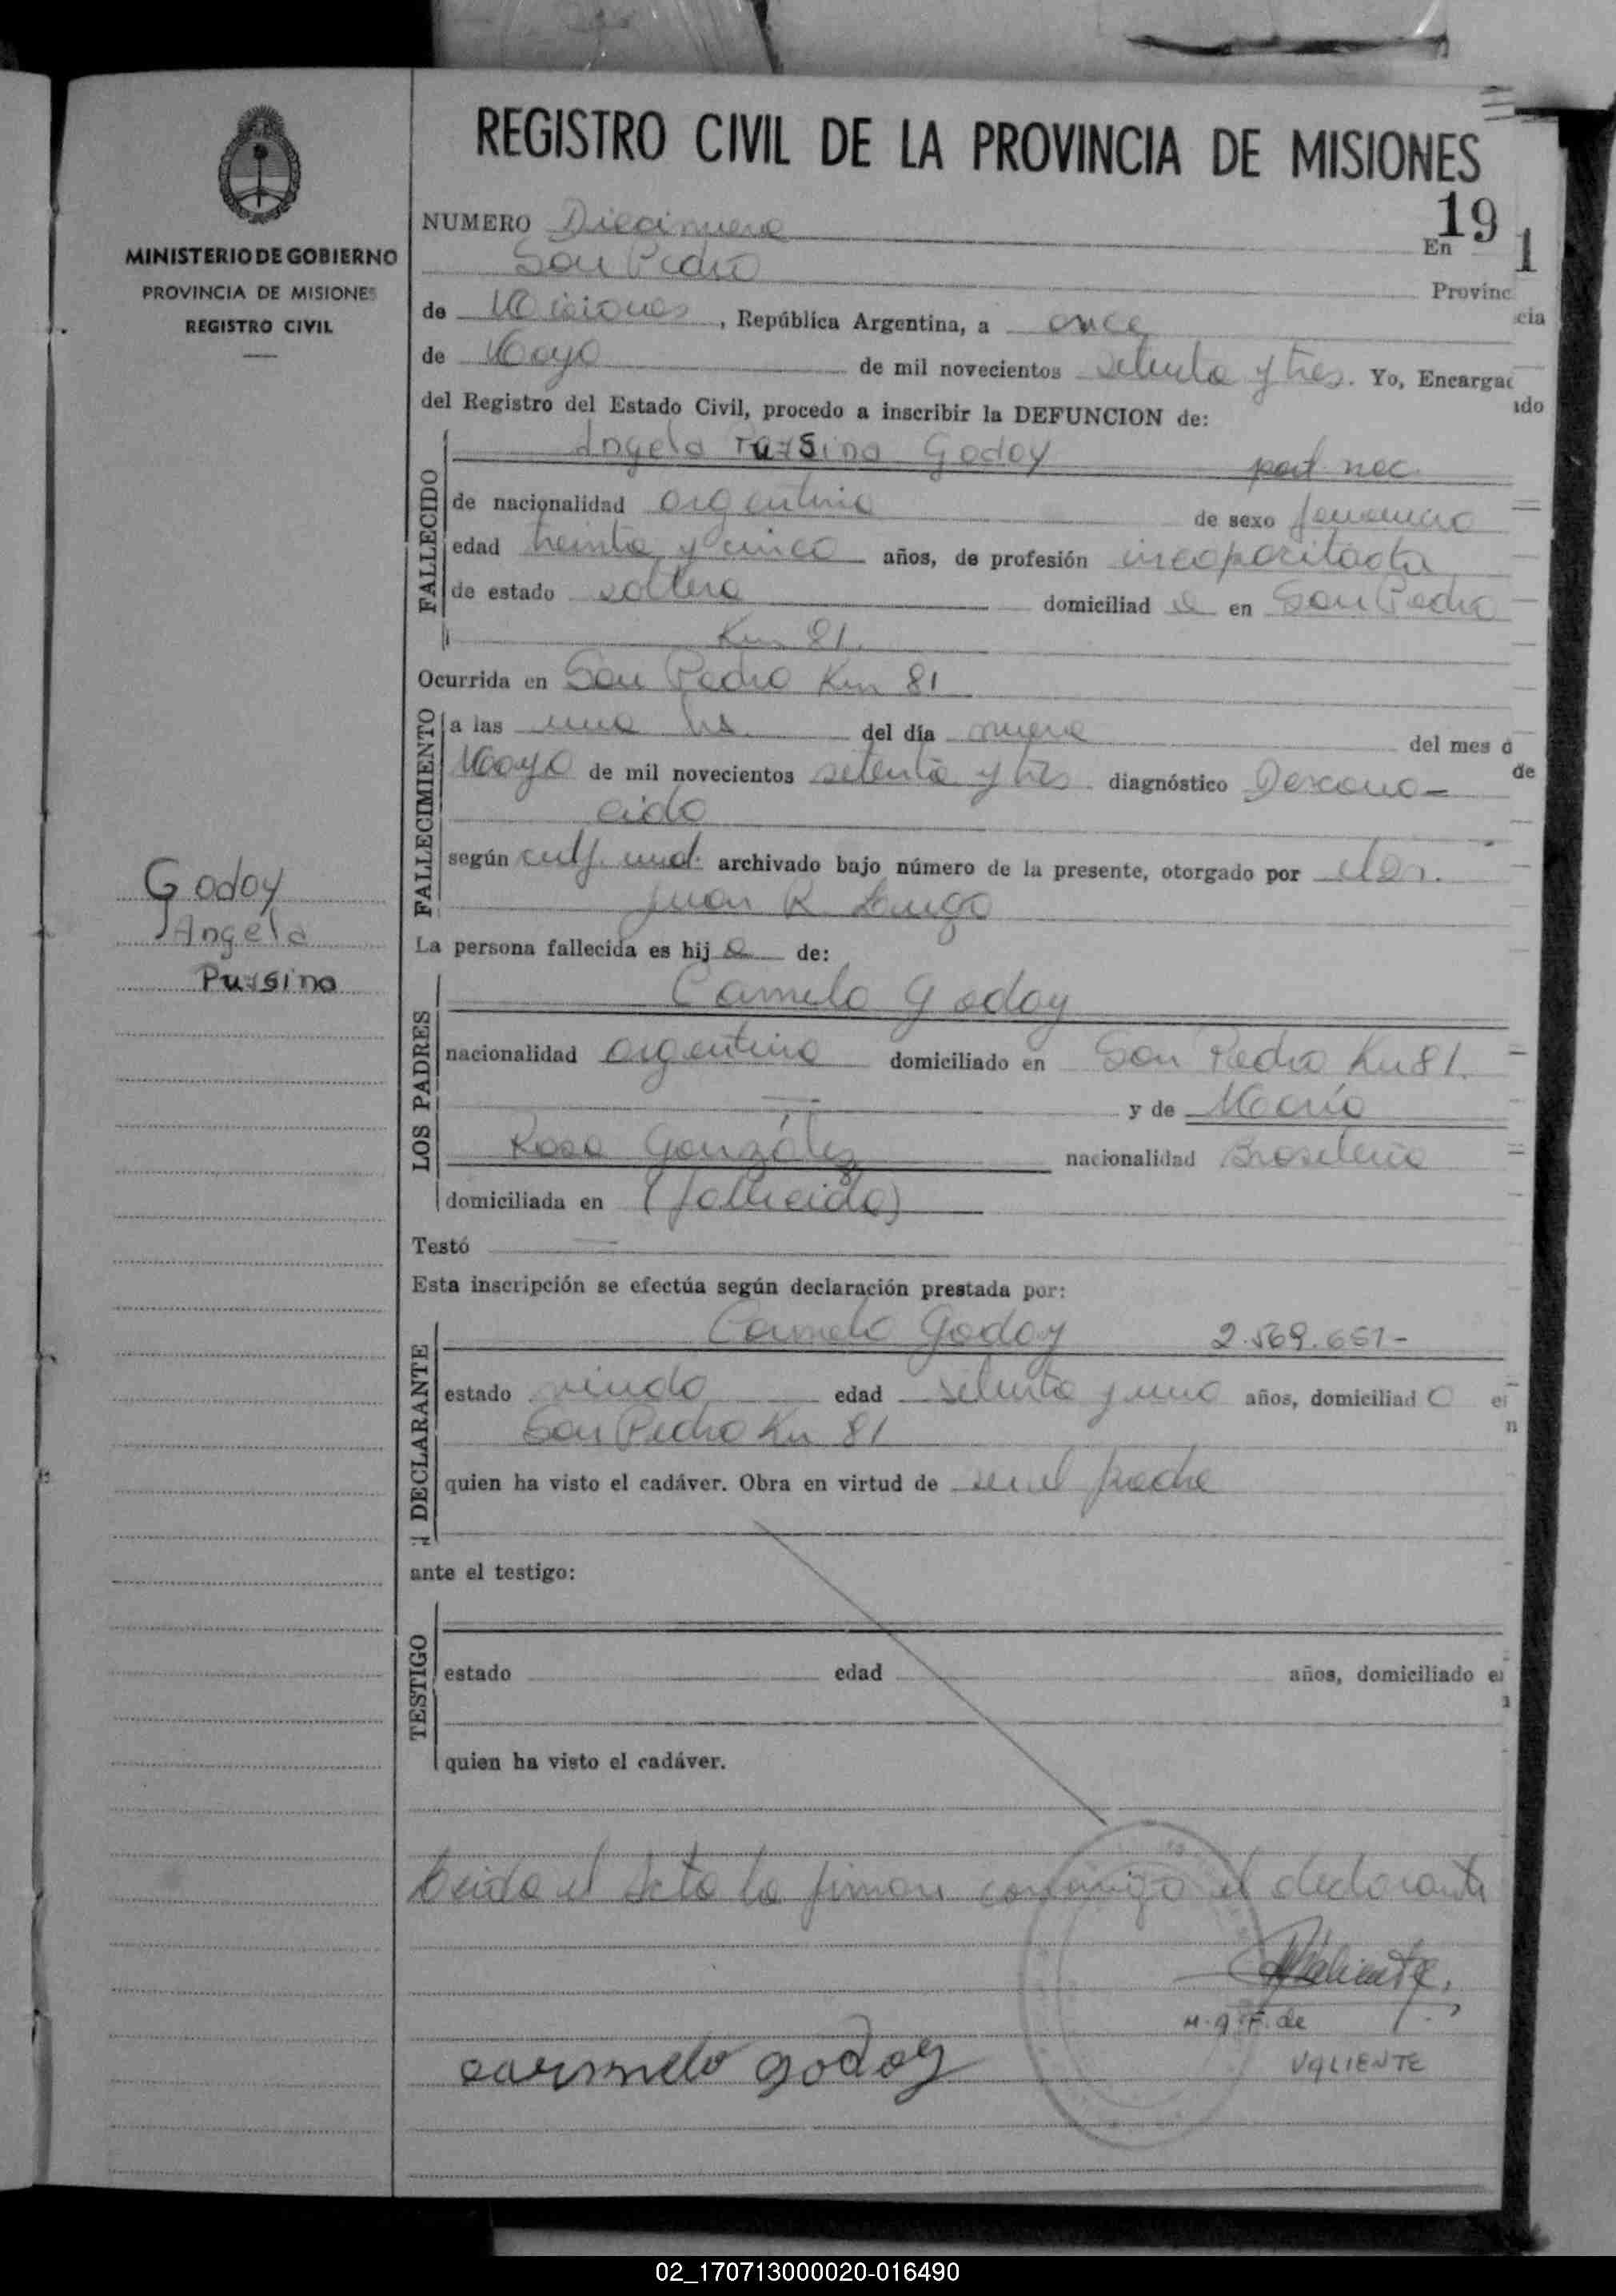 REGISTRO CIVIL DE LA PROVINCIA DE MISIONES
MINISTERIO DE GOBIERNO
PROVINCIA DE MISIONES
REGISTRO CIVIL
Godoy
Angela
NUMERO Diecinueve 19
En 1
San Pedro Provinc
cia
de Misiones, República Argentina, a once
de Mayo de mil novecientos setenta y tres. Yo, Encargad
ado
del Registro del Estado Civil, procedo a inscribir la DEFUNCION de:
FALLECIDO
Angela Godoy part nac.
de nacionalidad argentina de sexo femenino
edad treinta y cinco años, de profesión incapacitada
de estado soltera domiciliad a en San Pedro
Km 81.
Ocurrida en San Pedro Km 81
FALLECIMIENTO
a las una hs. del día nueve del mes d
de
Mayo de mil novecientos setenta y tres diagnóstico Descono-
cido
según certf. med. archivado bajo número de la presente, otorgado por
Juan R.
La persona fallecida es hij a de:
LOS PADRES
Carmelo Godoy
nacionalidad argentina domiciliado en San Pedro Km 81.
— y de María
Rosa González nacionalidad Brasileña
domiciliada en (fallecida)
Testó —
Esta inscripción se efectúa según declaración prestada por:
DECLARANTE
Carmelo Godoy 2.569.651-
estado viudo edad setenta y uno años, domiciliad o e
n
San Pedro Km 81
quien ha visto el cadáver. Obra en virtud de ser el padre
ante el testigo:
TESTIGO
estado edad años, domiciliado e
quien ha visto el cadáver.
Leida el Acta la firman conmigo el declarante
Valiente
M. A. F. de
VALIENTE
carmelo godoy
02_170713000020-016490